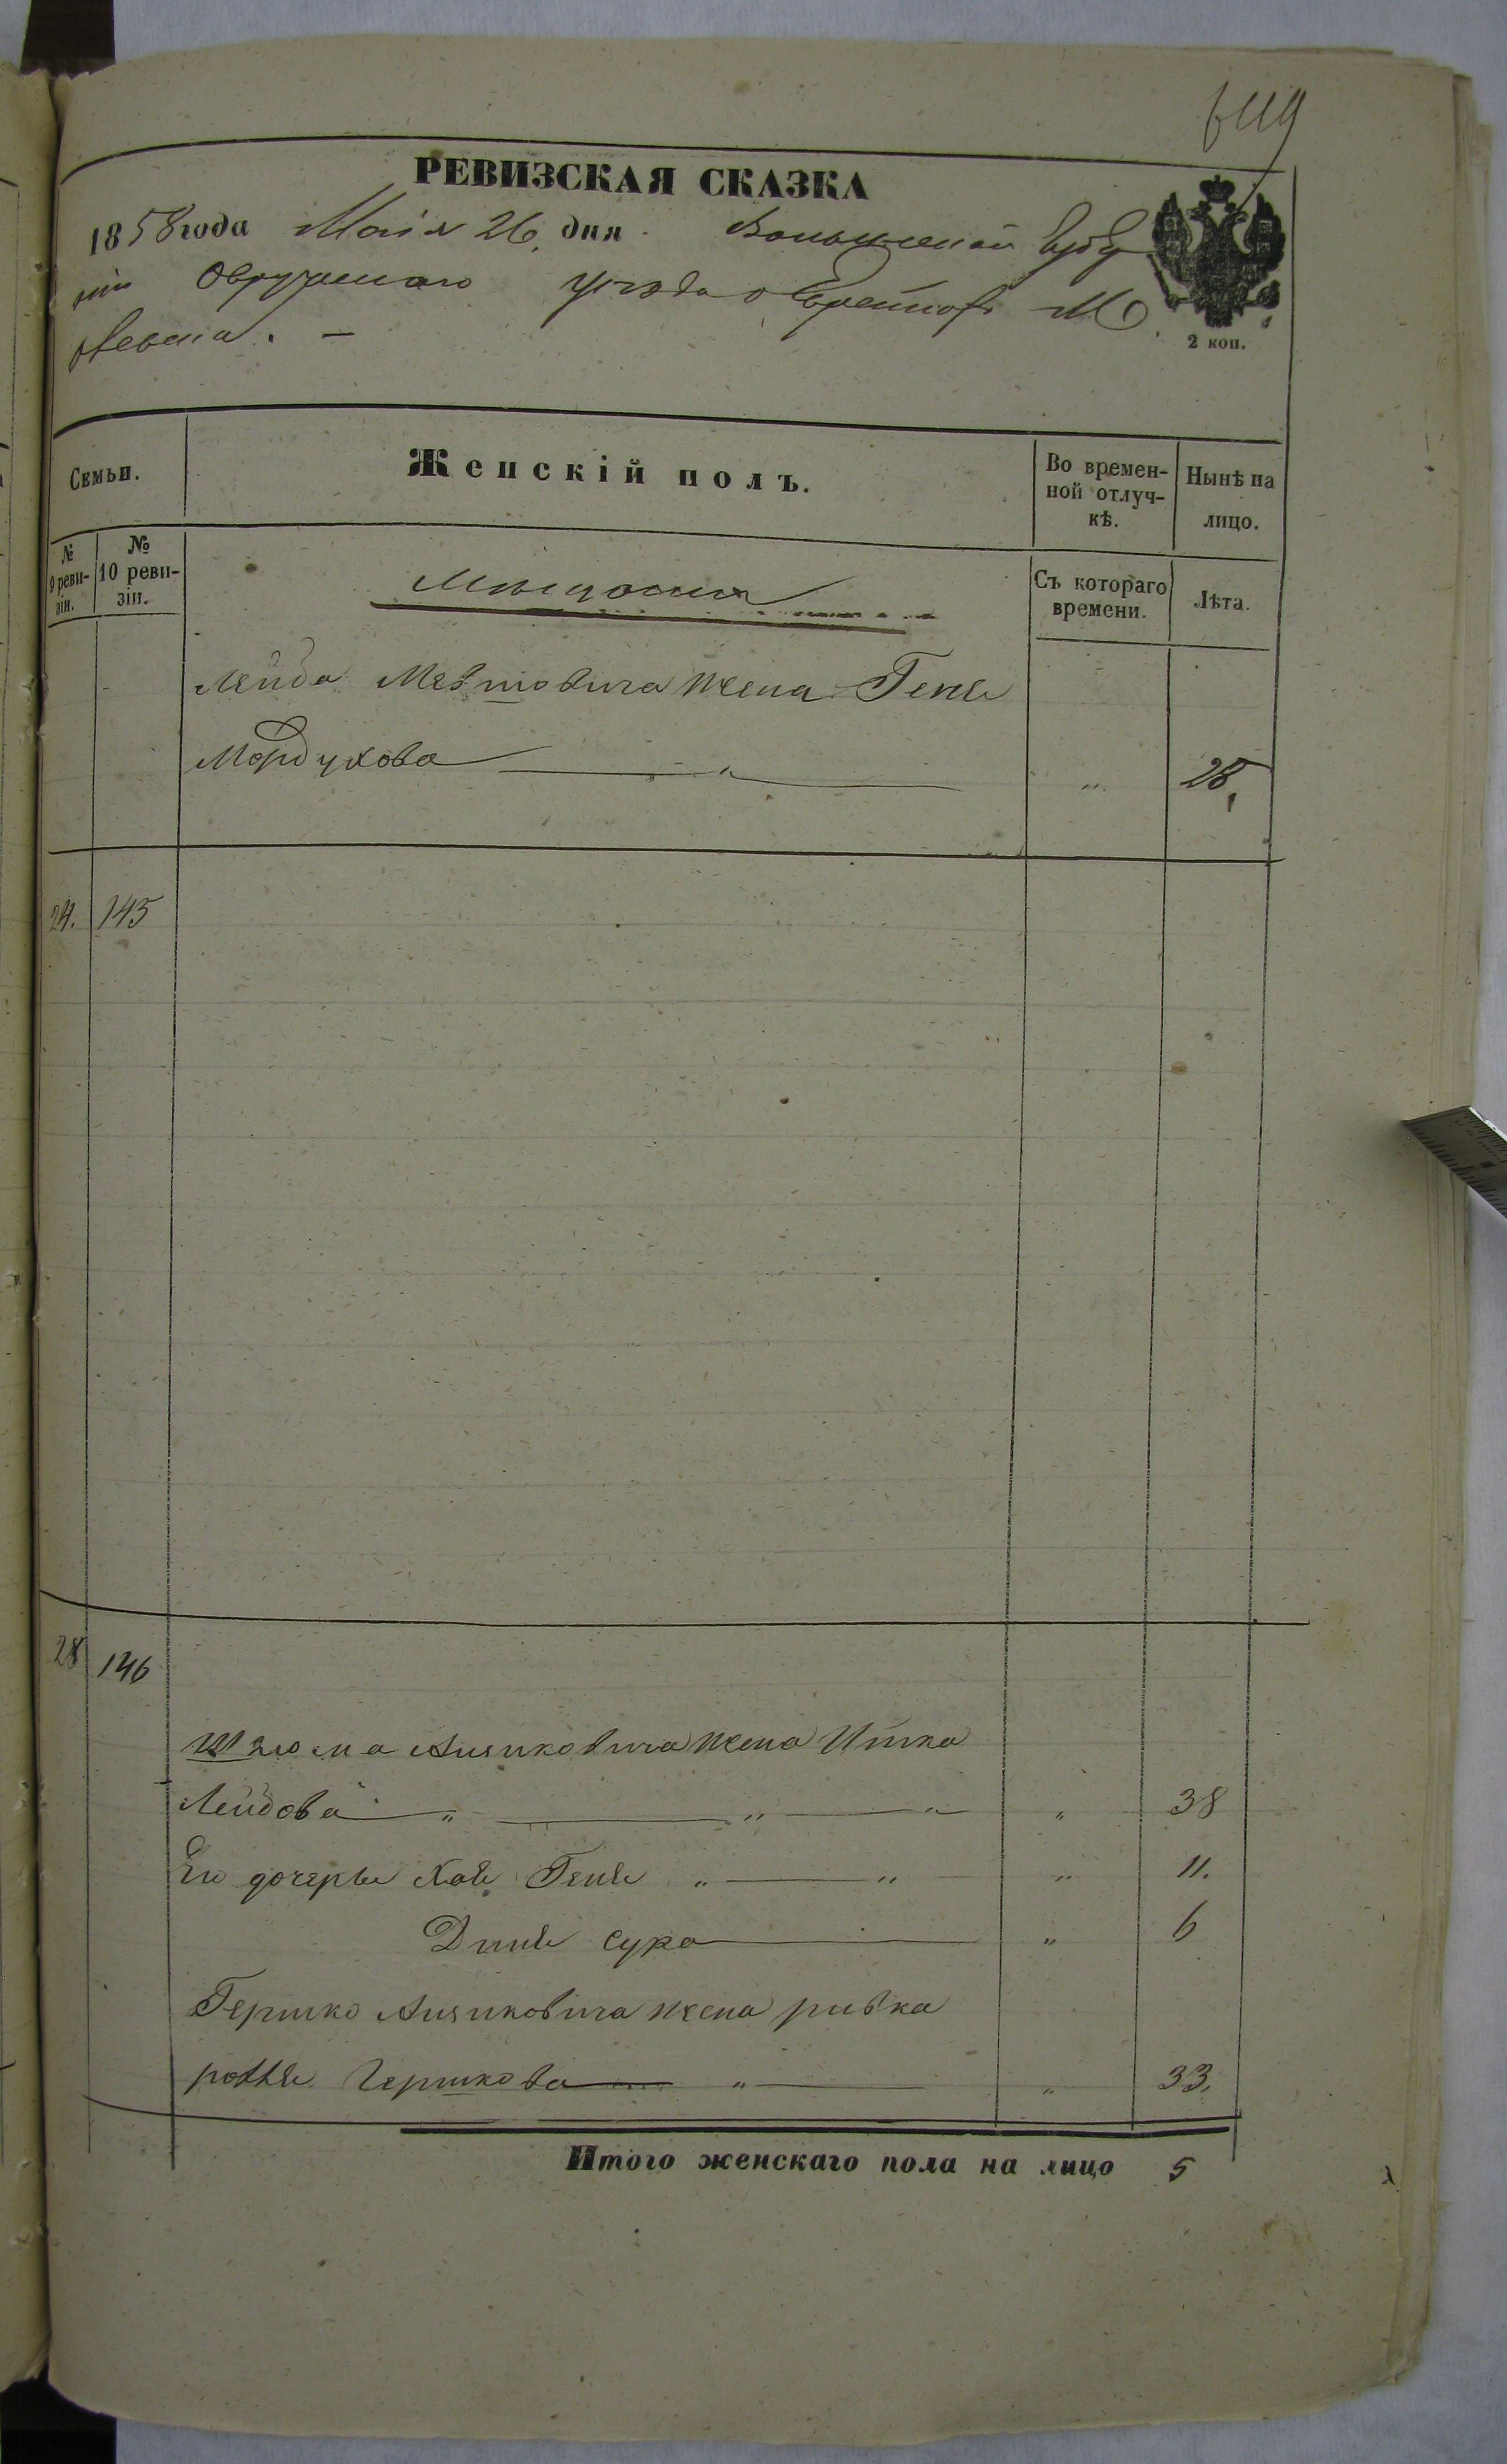 РЕВИЗСКАЯ СКАЗКА
1858 года Маія 26 дня Волынской Губер
ніи Овручскаго уезда о Евреяхъ М.
2 коп.
Семьи.
Женскій полъ.
Во времен-
ной отлуч-
кѣ.
Нынѣ на
лицо.
№
9 реви-
зіи.
№
10 реви-
зіи.
Мещане
Съ котораго
времени.
Лѣта.
Лейба Мевшовича жена Геня
Мордухова " " 28,
24. 145
28 146
Шлюма Айзиковича жена Итка
Лейбова " " " " 38
Его дочери Хая Геня " " " 11.
Диня Сура " 6
Гершко Айзиковича жена ривка
Гершкова " " 33,
Итого женскаго пола на лицо 5